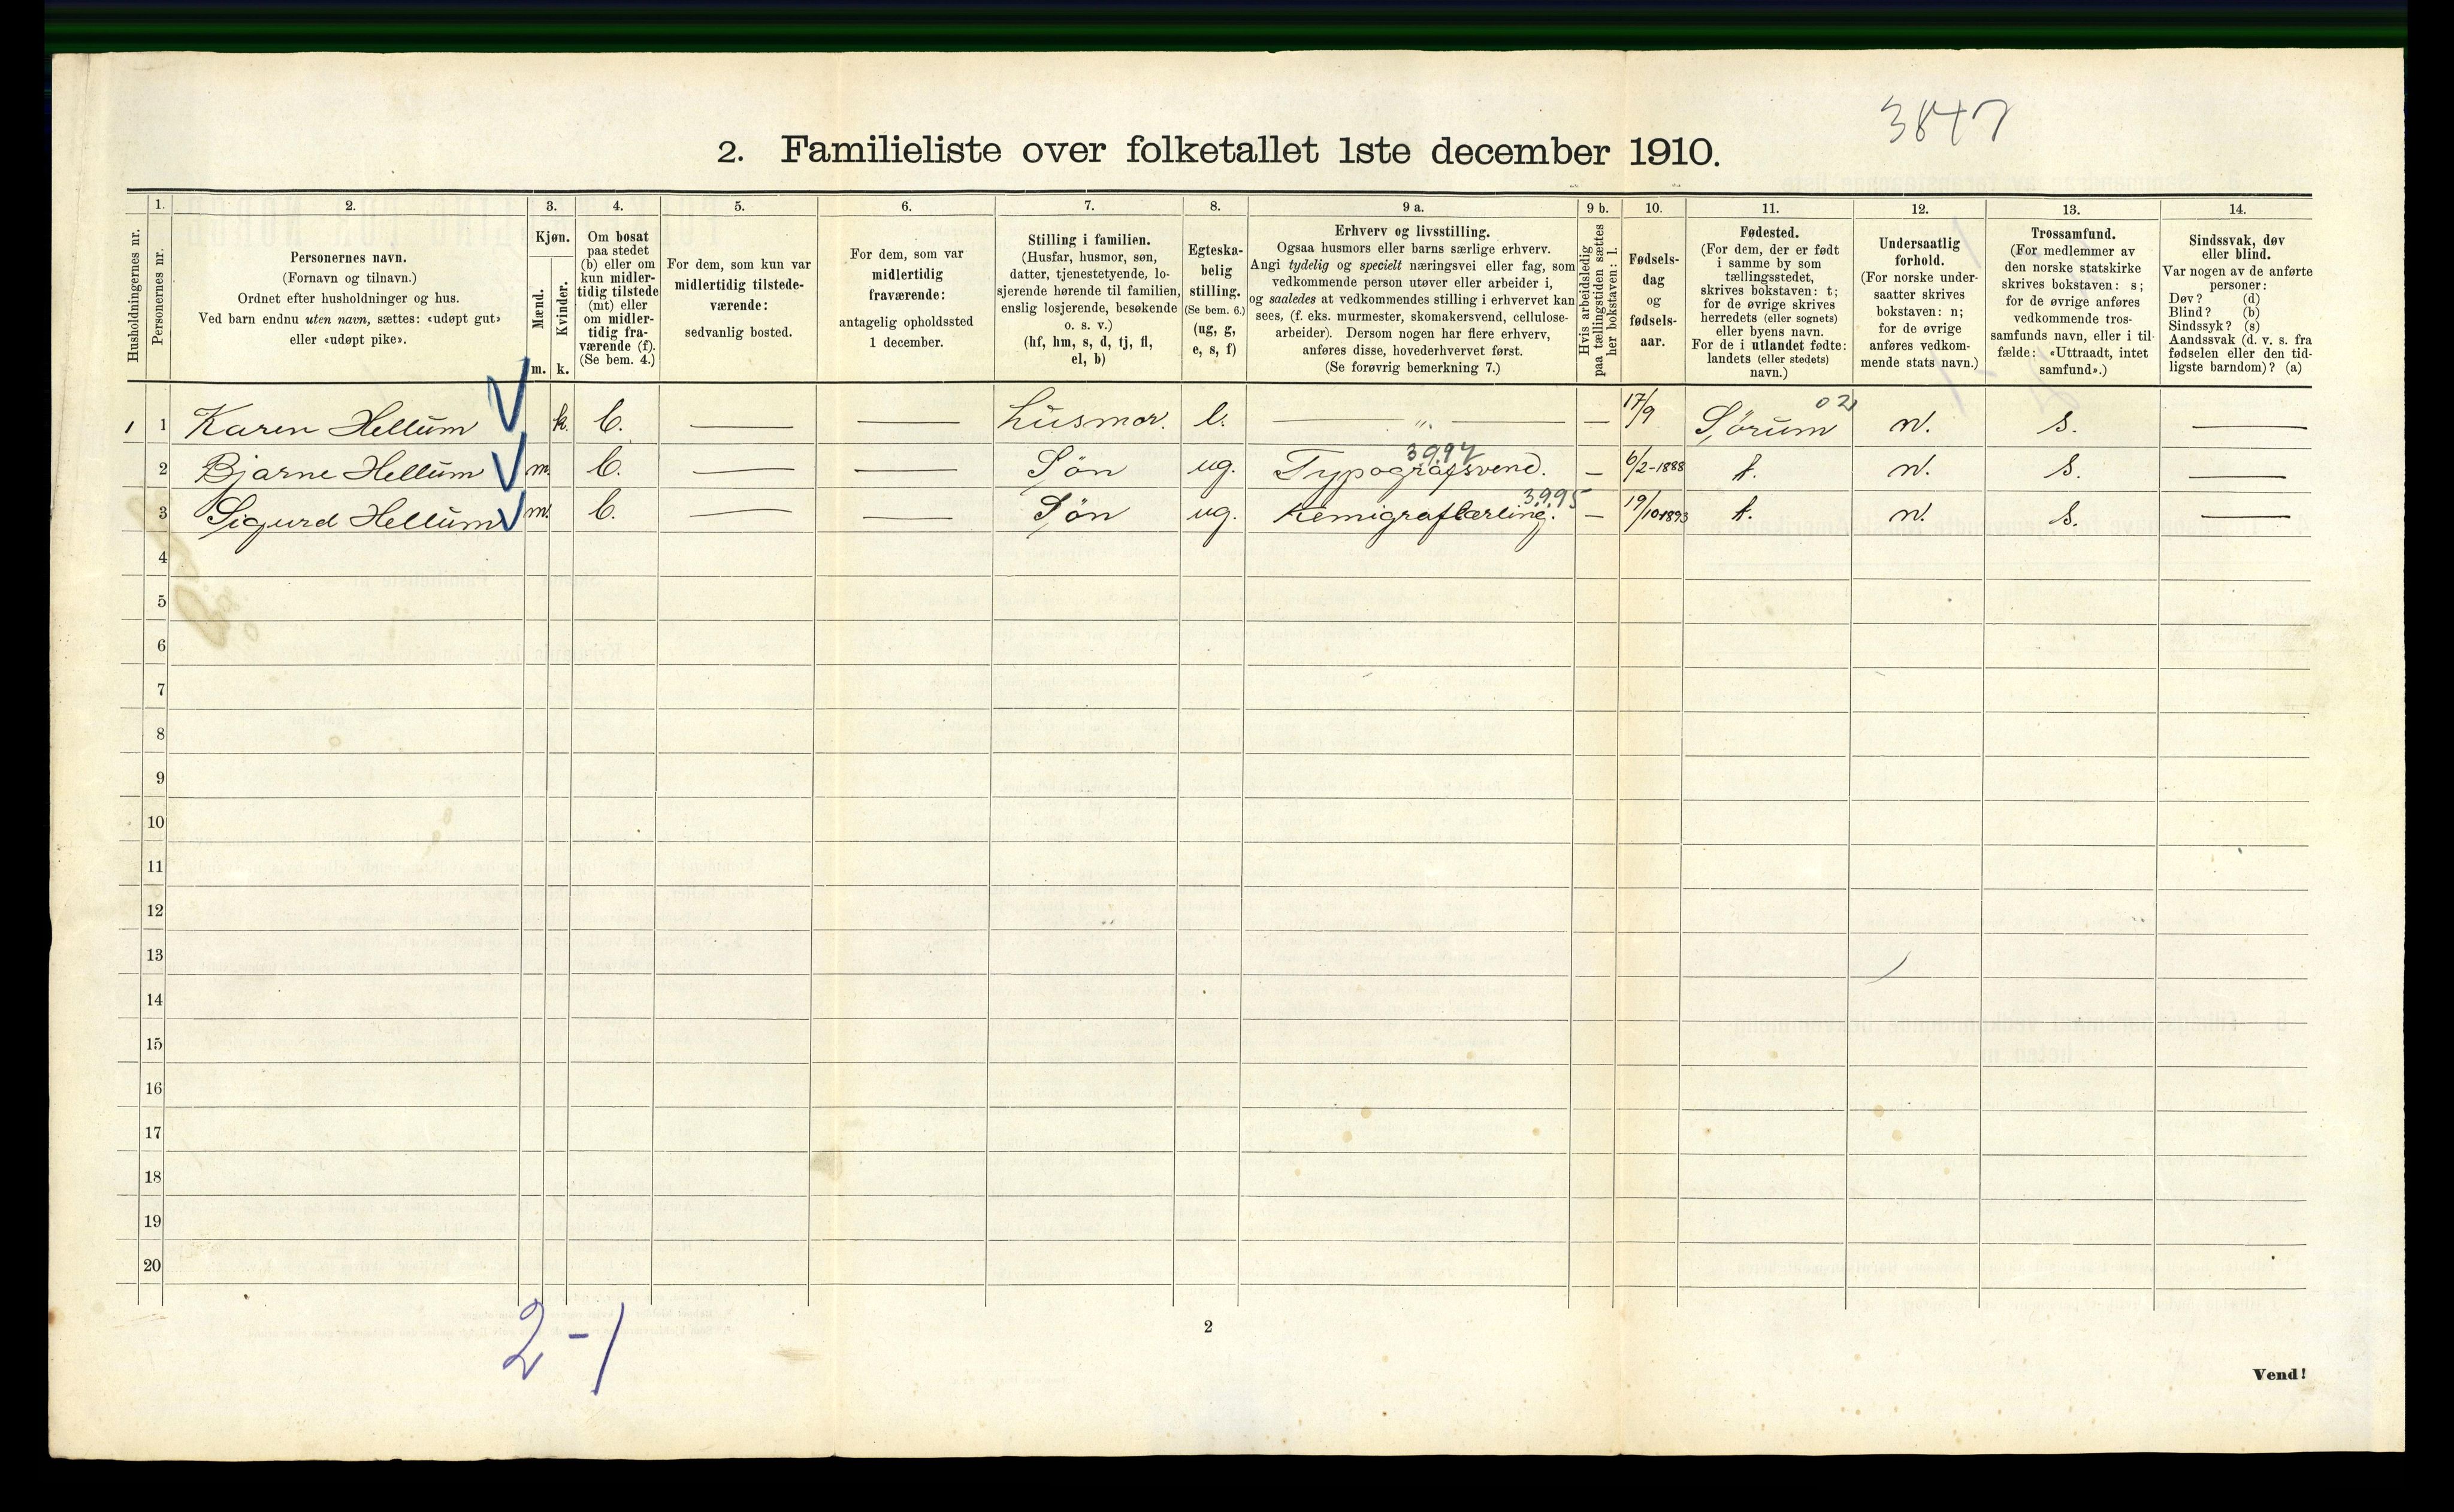 3847
2. Familieliste over folketallet 1ste december 1910.
1. 2. 3. 4. 5. 6. 7. 8. 9 a. 9 b. 10. 11. 12. 13. 14.
Husholdningernes nr.
Personernes nr.
Personernes navn.
(Fornavn og tilnavn.)
Ordnet efter husholdninger og hus.
Ved barn endnu uten navn, sættes: «udøpt gut»
eller «udøpt pike».
Kjøn.
Mænd.
Kvinder.
m. k.
Om bosat
paa stedet
(b) eller om
kun midler-
tidig tilstede
(mt) eller
om midler-
tidig fra-
værende (f).
(Se bem. 4.)
For dem, som kun var
midlertidig tilstede-
værende:
sedvanlig bosted.
For dem, som var
midlertidig
fraværende:
antagelig opholdssted
1 december.
Stilling i familien.
(Husfar, husmor, søn,
datter, tjenestetyende, lo-
sjerende hørende til familien,
enslig losjerende, besøkende
o. s. v.)
(hf, hm, s, d, tj, fl,
el, b)
Egteska-
belig
stilling.
(Se bem. 6.)
(ug, g,
e, s, f)
Erhverv og livsstilling.
Ogsaa husmors eller barns særlige erhverv.
Angi tydelig og specielt næringsvei eller fag, som
vedkommende person utøver eller arbeider i,
og saaledes at vedkommendes stilling i erhvervet kan
sees, (f. eks. murmester, skomakersvend, cellulose-
arbeider). Dersom nogen har flere erhverv,
anføres disse, hovederhvervet først.
(Se forøvrig bemerkning 7.)
Hvis arbeidsledig
paa tællingstiden sættes
her bokstaven: l.
Fødsels-
dag
og
fødsels-
aar.
Fødested.
(For dem, der er født
i samme by som
tællingsstedet,
skrives bokstaven: t;
for de øvrige skrives
herredets (eller sognets)
eller byens navn.
For de i utlandet fødte:
landets (eller stedets)
navn.)
Undersaatlig
forhold.
(For norske under-
saatter skrives
bokstaven: n;
for de øvrige
anføres vedkom-
mende stats navn.)
Trossamfund.
(For medlemmer av
den norske statskirke
skrives bokstaven: s;
for de øvrige anføres
vedkommende tros-
samfunds navn, eller i til-
fælde: «Uttraadt, intet
samfund».)
Sindssvak, døv
eller blind.
Var nogen av de anførte
personer:
Døv? (d)
Blind? (b)
Sindssyk? (s)
Aandssvak (d. v. s. fra
fødselen eller den tid-
ligste barndom)? (a)
1 1 Karen Hellum k. b. — — husmor. — „ — — 17/9 Sørum 02 n. s. —
2 Bjarne Hellum m. b. — — Søn ug. Typografsvend. 3994 — 6/2-1888 t. n. s. —
3 Sigurd Hellum m. b. — — Søn ug. Kemigraflærling. 3995 — 19/10 1893 t. n. s. —
4
5
6
7
8
9
10
11
12
13
14
15
16
17
18
19
20
2-1
2
Vend!